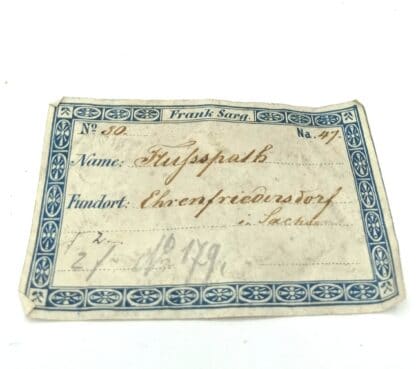 Frank Sarg.
No 30. Na. 47.
Name: Flußspath
Fundort: Ehrenfriedersdorf
in Sachsen
2
2/- No 179.